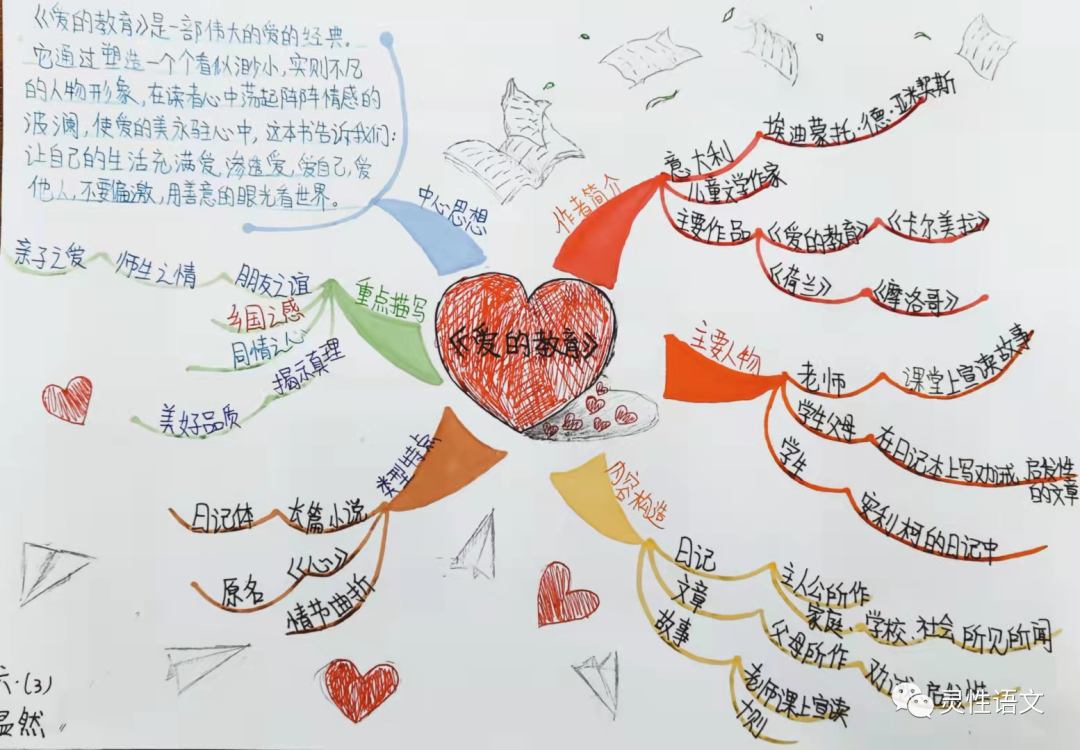 《爱的教育》是一部伟大的爱的经典。
它通过塑造一个个看似渺小,实则不凡
的人物形象,在读者心中荡起阵阵情感的
波澜,使爱的美永驻心中,这本书告诉我们:
让自己的生活充满爱,渗透爱,爱自己,爱
他人,不要偏激,用善意的眼光看世界。
中心思想
作者简介
意大利
埃迪蒙托·德·亚米契斯
儿童文学作家
主要作品
《爱的教育》
《卡尔美拉》
《荷兰》
《摩洛哥》
重点描写
亲子之爱
师生之情
朋友之谊
乡国之感
同情之心
揭示真理
美好品质
《爱的教育》
主要人物
老师
课堂上宣读故事
学生父母
在日记本上写劝戒、启发性
的文章
学生
安利柯的日记中
类型特点
日记体
长篇小说
原名
《心》
情节曲折
内容构造
日记
主人公所作
家庭、学校、社会所见所闻
文章
父母所作
劝诫 启发性
故事
老师课上宣读
十则
六·(3)
显然
灵性语文